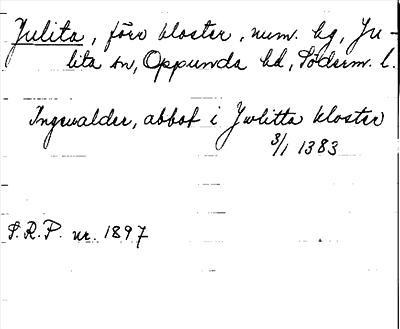 Julita, förv kloster, num. kg, Ju-
lita sn, Oppunda hd, Söderm. l.
Ingevalder, abbot i Jwlitta kloster
3/1 1383
S.R.P. nr. 1897